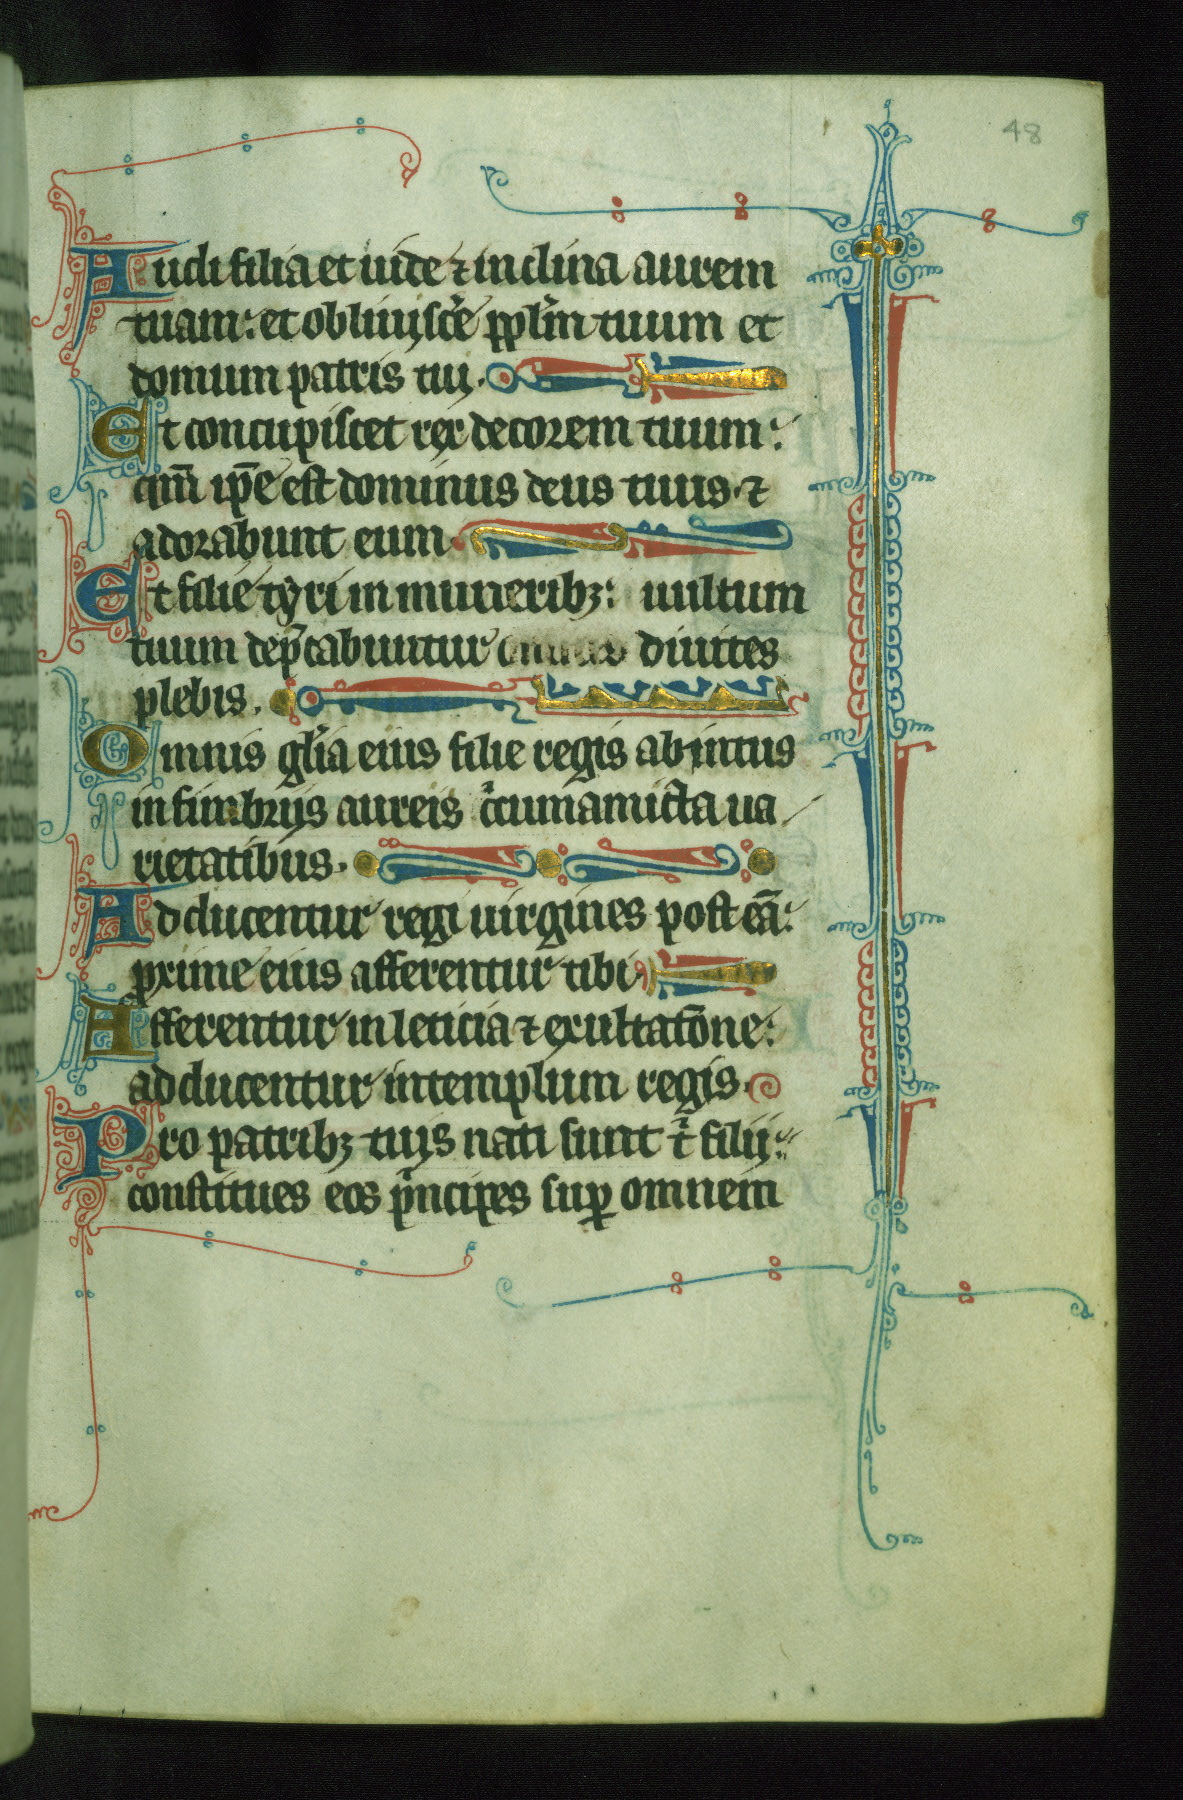 48
Audi filia et uide ⁊ inclina aurem
tuam: et obliuiscẻ ppl̃m tuum et
domum patris tui.
Et concupiscet rex decorem tuum:
qm̃ ip̃e est dominus deus tuus ⁊
adorabunt eum
Et filie tyri in muneribꝫ: uultum
tuum dep̃cabuntur diuites
plebis.
Omnis gl̃ia eius filie regis abintus
in fimbrijs aureis c̃cumamicta ua
rietatibus.
Adducentur regi uirgines post eã:
ꝓxime eius afferentur tibi.
Afferentur in leticia ⁊ exultatõne:
adducentur in templum regis.
Pro patribꝫ tuis nati sunt t̃ filij:
constitues eos p̃ncipes suꝑ omnem